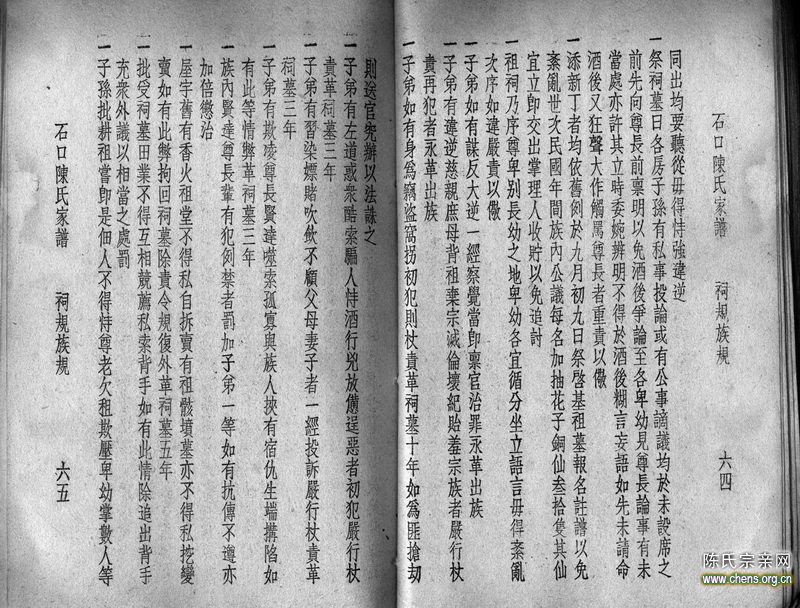 同出均要聽從毋得恃強違逆
一祭祠墓日各房子孫有私事投論或有公事謫議均於未設席之
前先向尊長前禀明以免酒後爭論至各卑幼見尊長論事有未
當處亦許其立時委婉辨明不得於酒後糊言妄語如先未請命
酒後又狂聲大作觸罵尊長者重責以儆
一添新丁者均依舊例於九月初九日祭啓基祖墓報名註譜以免
紊亂世次民國年間族內公議每名加抽花子銅仙叁拾隻其仙
宜立卽交出掌理人收貯以免追討
一祖祠乃序尊卑別長幼之地卑幼各宜循分坐立語言毋得紊亂
次序如違嚴責以儆
一子弟如有謀反大逆一經察覺當卽禀官治罪永革出族
一子弟有違逆慈親庶母背祖棄宗滅倫壞紀貽羞宗族者嚴行杖
責再犯者永革出族
一子弟如有身爲竊盜窩拐初犯則杖責革祠墓十年如爲匪搶刼
石口陳氏家譜
祠規族規
六四
則送官究辦以法誅之
一子弟有左道或衆酷索騙人恃酒行兇放僊逞惡者初犯嚴行杖
責革祠墓三年
一子弟有習染嫖賭吹飲不顧父母妻子者一經投訴嚴行杖責革
祠墓三年
一子弟有欺凌尊長賢達噬索孤寡與族人挾有宿仇生端搆陷如
有此等情弊革祠墓三年
一族內賢達尊長輩有犯例禁者罰加子弟一等如有抗傳不遵亦
加倍懲治
一屋宇舊有香火祖堂不得私自拆賣有祖骸墳墓亦不得私挖變
賣如有此弊拘回祠墓除責令規復外革祠墓五年
一批受祠墓田業不得互相競薦私索背手如有此情除追出背手
充衆外議以相當之處罰
一子孫批耕祖嘗卽是佃人不得恃尊老欠租欺壓卑幼掌數人等
石口陳氏家譜
祠規族規
六五
陈氏宗亲网
www.chens.org.cn